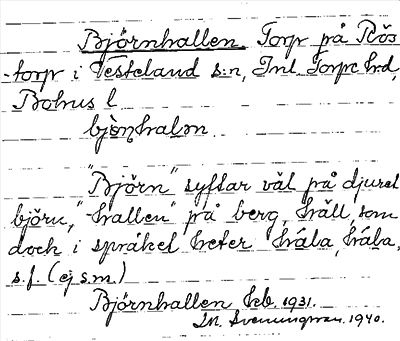 Björnhallen Torp på Rös
-torp i Vesteland s:n, Inl Torpe h:d,
Bohus l
bjö̀ṇhalən
"Björn" syftar väl på djuret
björn, "-hallen" på berg, häll, som
dock i språket heter hála, hála,
s.f. (ej s.m.)
Björnhallen kb. 1931.
M. Svenungsson. 1940.